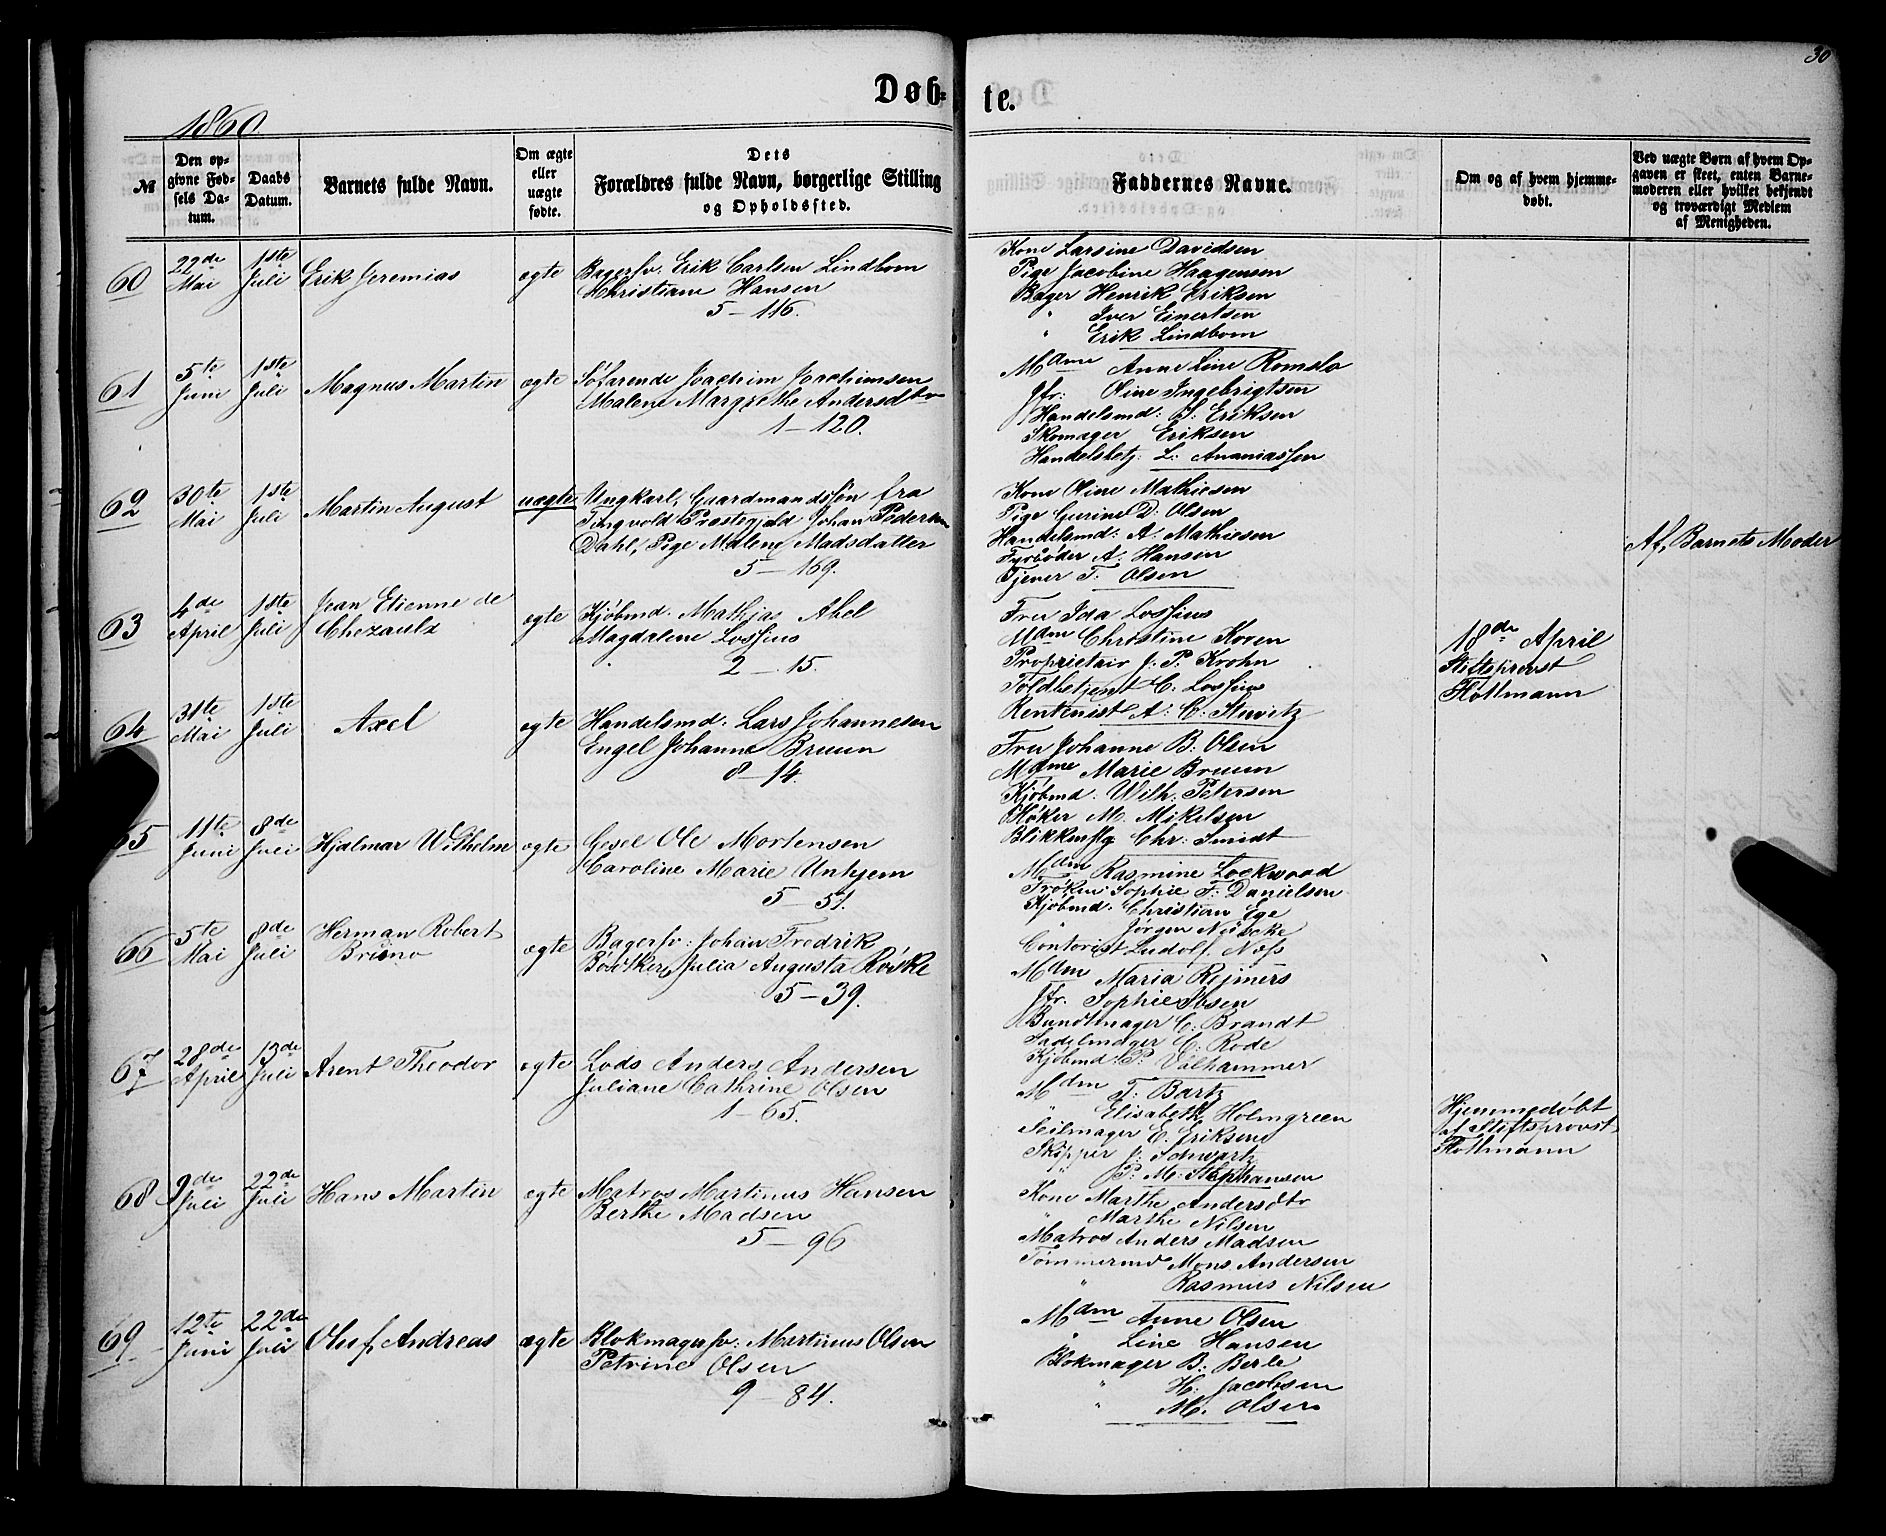 30
Døb- te.
1860
№
Den op-
givne Fød-
sels Da-
tum.
Daabs
Datum.
Barnets fulde Navn.
Om ægte
eller
uægte
fødte.
Dets
Forældres fulde Navn, borgerlige Stilling
og Opholdssted.
Faddernes Navne.
Om og af hvem hjemme-
døbt.
Ved uægte Børn af hvem Op-
gaven er skeet, enten Barne-
moderen eller hvilket bekjendt
og troværdigt Medlem
af Menigheden.
60
22de
Mai
1ste
Juli
Erik Jeremias
egte
Bagersv. Erik Carlsen Lindbom
Christiane Hansen
5 — 116.
Kone Larsine Davidsen
Pige Jacobine Haagensen
Bager Henrik Eriksen
" Iver Einertsen
" Erik Lindbom
61
5te
Juni
1ste
Juli
Magnus Martin
ægte
Søfarende Joachim Joachimsen
Malene Margrethe Andersdtr
1 — 120.
Mdme Anne Line Romslo
Jfr: Oline Ingebrigtsen
Handelsmd: S: Eriksen
Skomager Eriksen
Handelsbetj. L: Ananiassen
62
30te
Mai
1ste
Juli
Martin August
uægte
Ungkarl, Gaardmandssøn fra
Tingvold Præstegjæld Johan Pedersen
Dahl, Pige Malene Madsdatter
5 — 169.
Kone Oline Mathiesen
Pige Gurine D: Olsen
Handelsmd: A. Mathiesen
Fyrbøder A. Hansen
Tjener T: Olsen
Af Barnets Moder
63
4de
April
1ste
Juli
Jean Etienne de
Chezaulx
egte
Kjøbmd. Mathias Abel
Magdalene Lossius
2 — 15.
Fru Ida Lossius
Mdm Christine Koren
Proprietair J. P. Krohn
Toldbetjent C. Lossius
Rentenist A: C. Stuwitz
18de April
Stiftsprovst
Flottmann
64
31te
Mai
1ste
Juli
Axel
egte
Handelsmd. Lars Johannesen
Engel Johanne Bruun
8 — 14.
Fru Johanne B. Olsen
Mdme Marie Bruun
Kjøbmd: Wilh. Petersen
Høker M. Mikelsen
Blikkenslg Chr: Smidt
65
11te
Juni
8de
Juli
Hjalmar Wilhelm
egte
Gesel Ole Mortensen
Caroline Marie Unhjem
5 — 51.
Mdm Rasmine Lockwood
Frøken Sophie F: Danielsen
Kjøbmd. Christian Ege
" Jørgen
Contorist Ludolf Næss
66
5te
Mai
8de
Juli
Herman Robert
Bruno
egte
Bagersv: Johan Fredrik
Bödtker, Julia Augusta
5 — 39.
Mdm Maria Rejmers
Jfr. Sophie Ibsen
Bundtmager C. Brandt
Sadelmager C. Rode
Kjøbmd P. Valhammer
67
28de
April
13de
Juli
Arent Theodor
egte
Lods Anders Andersen
Juliane Cathrine Olsen
1 — 65.
Mdm T. Bartz
" Elisabeth Holmgreen
Seilmager C. Eriksen
Skipper J: Schwartz
" P. M: Stephansen
Hjemmedøbt
af Stiftsprovst
Flottmann
68
9de
Juli
22de
Juli
Hans Martin
ægte
Matros Martinus Hansen
Berthe Madsen
5 — 96
Kone Marthe Andersdtr
" Marthe Nilsen
Matros Anders Madsen
Tømmermd Mons Andersen
" Rasmus Nilsen
69
12te
Juni
22de
Juli
Oluf Andreas
ægte
Blokmagersv: Martinus Olsen
Petrine Olsen
9 — 84.
Mdm Anne Olsen
" Line Hansen
Blokmager B. Berle
" H. Jacobsen
" M. Olsen